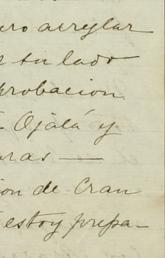 ero arreglar
tu lado
probacion
Ojalá y
ras —
ion de Cran
estoy prepa-